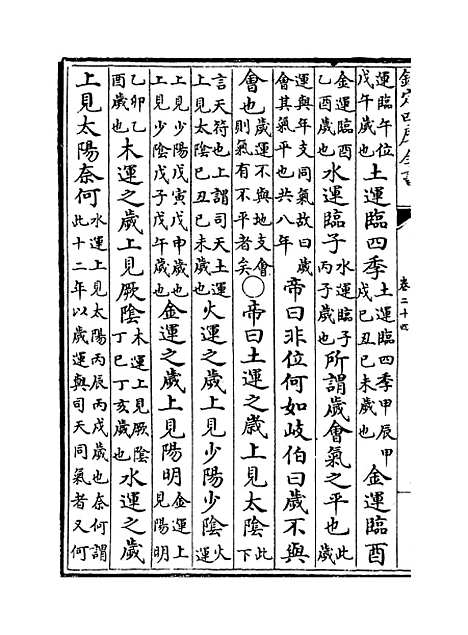 欽定四庫全書 卷二十四
運臨午位戊午歲也土運臨四季土運臨四季甲辰甲戌己丑己未歲也金運臨酉
金運臨酉乙酉歲也水運臨子水運臨子丙子歲也所謂歲會氣之平也此歲
運與年支同氣故曰歲會其氣平也共八年帝曰非位何如岐伯曰歲不與
會也歲運不與地支會則氣有不平者矣○帝曰土運之歲上見太陰此下
言天符也上謂司天土運上見太陰己丑己未歲也火運之歲上見少陽少陰火運
上見少陽戊寅戊申歲也上見少陰戊子戊午歲也金運之歲上見陽明金運上見陽明
乙卯乙酉歲也木運之歲上見厥陰木運上見厥陰丁巳丁亥歲也水運之歲
上見太陽奈何水運上見太陽丙辰丙戌歲也奈何謂此十二年以歲運與司天同氣者又何